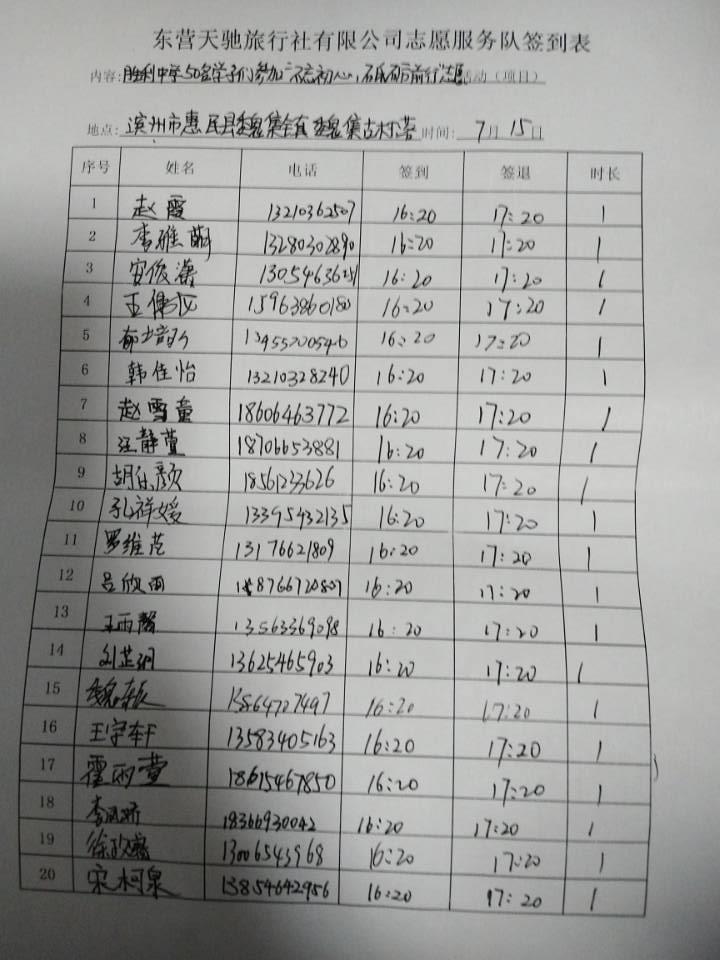 东营天驰旅行社有限公司志愿服务队签到表
内容:胜利中学50名学子们参加"不忘初心,砥砺前行"活动(项目)
地点:滨州市惠民县魏集镇魏集古村落 时间: 7月15日
序号 姓名 电话 签到 签退 时长
1 赵霞 13210362507 16:20 17:20 1
2 李雅 13280302890 16:20 17:20 1
3 安俊潇 13054636 16:20 17:20 1
4 王 15963860180 16:20 17:20 1
5 郁 13455200546 16:20 17:20 1
6 韩佳怡 13210328240 16:20 17:20 1
7 赵雪童 18606463772 16:20 17:20 1
8 汪静萱 18706653881 16:20 17:20 1
9 胡 颜 18561233626 16:20 17:20 1
10 孔祥媛 13395432135 16:20 17:20 1
11 罗维范 13176621809 16:20 17:20 1
12 吕欣雨 15876672080 16:20 17:20 1
13 王雨馨 13563369098 16:20 17:20 1
14 刘芷 13625465903 16:20 17:20 1
15 魏 15864727497 16:20 17:20 1
16 王宇轩 13583405163 16:20 17:20 1
17 霍雨萱 18615467850 16:20 17:20 1
18 李 18366930042 16:20 17:20 1
19 徐政 13006543968 16:20 17:20 1
20 宋柯泉 13854642956 16:20 17:20 1